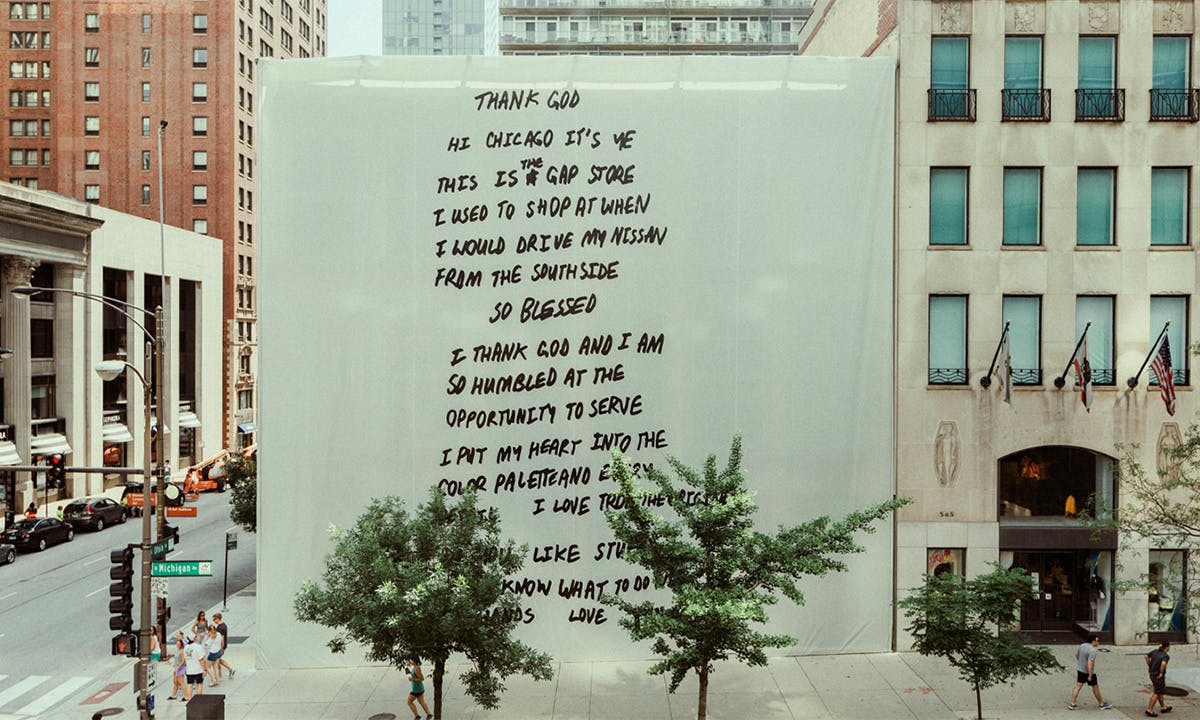 THANK GOD
HI CHICAGO IT'S YE
THIS IS THE GAP STORE
I USED TO SHOP AT WHEN
I WOULD DRIVE MY NISSAN
FROM THE SOUTHSIDE
SO BLESSED
I THANK GOD AND I AM
SO HUMBLED AT THE
OPPORTUNITY TO SERVE
I PUT MY HEART INTO THE
COLOR PALETTE AND
I LOVE
LIKE
KNOW WHAT TO DO
LOVE
Michigan Av
545